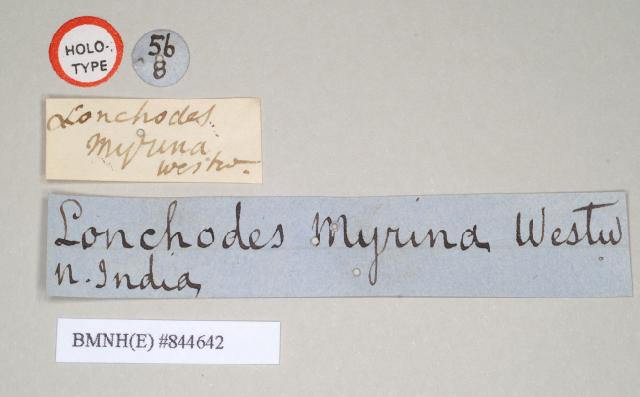 HOLO-
TYPE
56
8
Lonchodes
Myrina
Westw.
Lonchodes Myrina Westw
N. India
BMNH(E) #844642